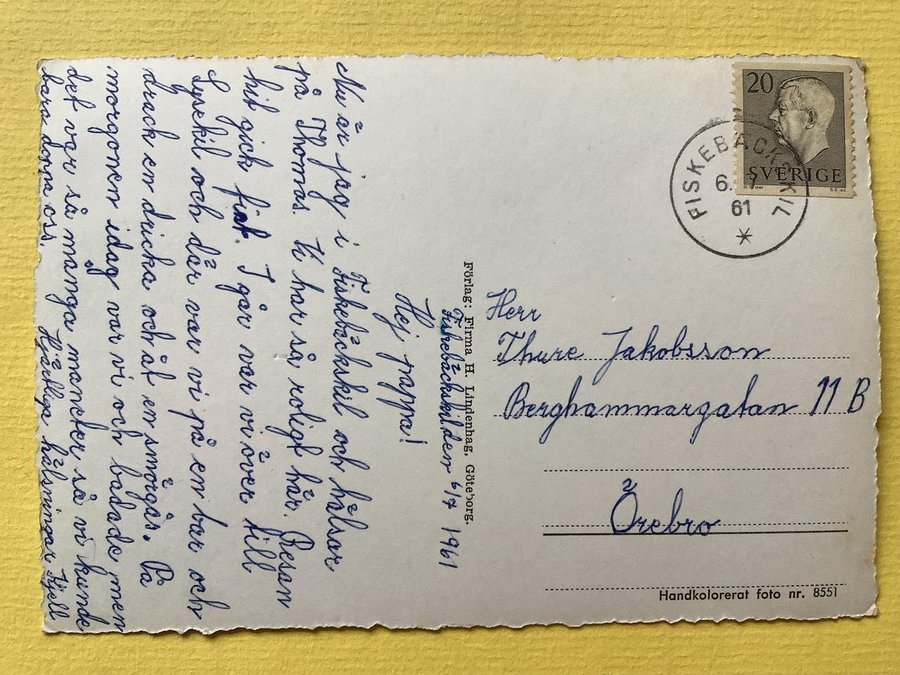 Fiskebäckskil den 6/7 1961
Hej pappa!
Nu är jag i Fiskebäckskil och hälsar
på Thomas. Vi har så roligt här. Resan
hit gick fint. I går var vi över till
Lysekil och där var vi på en bar och
drack en dricka och åt en smörgås. På
morgonen idag var vi och badade men
det var så många maneter så vi kunde
bara doppa oss. Hjärtliga hälsningar Kjell
Förlag: Firma H. Lindenhag, Göteborg.
20
SVERIGE
FISKEBÄCKSKIL
6.
61
Herr
Thure Jakobsson
Berghammargatan 11 B
Örebro
Handkolorerat foto nr. 8551